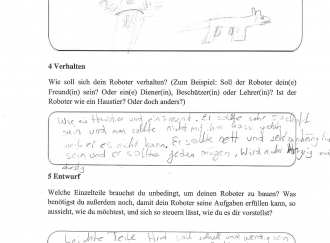 4 Verhalten
Wie soll sich dein Roboter verhalten? (Zum Beispiel: Soll der Roboter dein(e)
Freund(in) sein? Oder ein(e) Diener(in), Beschützer(in) oder Lehrer(in)? Ist der
Roboter wie ein Haustier? Oder doch anders?)
Wie ein Haustier und ein Freund. Er sollte sehr
sein und man sollte nicht mit ihm
weil er es nicht kann. Er sollte nett und sehr
sein und er sollte jeden mögen. Wird nicht
5 Entwurf
Welche Einzelteile brauchst du unbedingt, um deinen Roboter zu bauen? Was
benötigst du außerdem noch, damit dein Roboter seine Aufgaben erfüllen kann, so
aussieht, wie du möchtest, und sich so steuern lässt, wie du es dir vorstellst?
Leichte Teile soll schnell und wenig